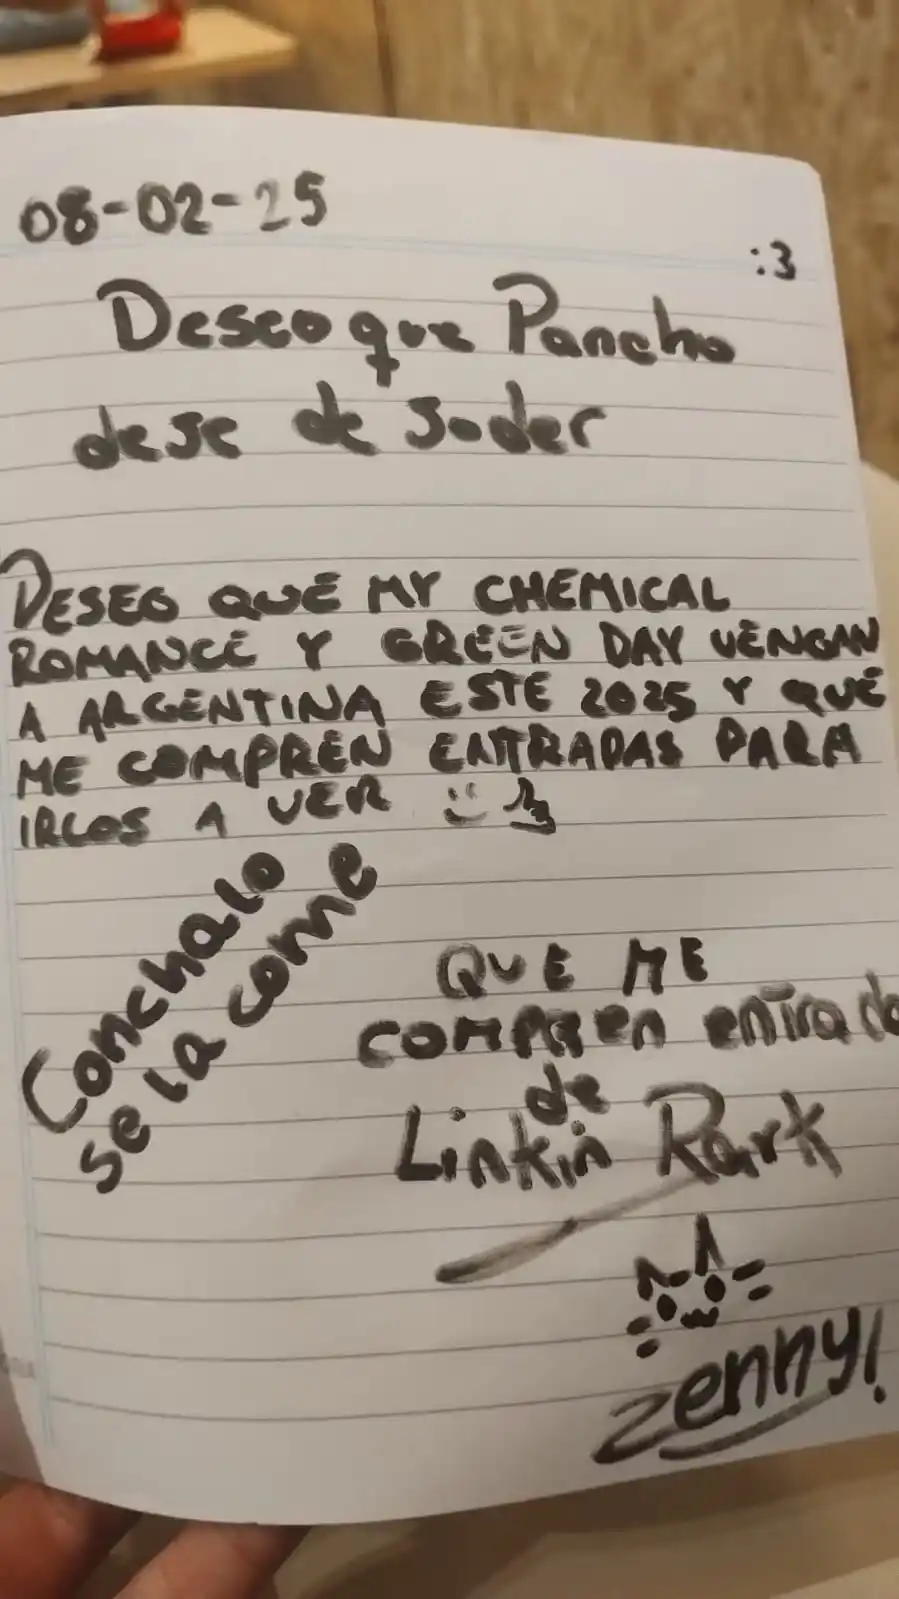 08-02-25
:3
Deseo que Pancho
deje de joder
DESEO QUE MY CHEMICAL
ROMANCE Y GREEN DAY VENGAN
A ARGENTINA ESTE 2025 Y QUE
ME COMPREN ENTRADAS PARA
IRLOS A VER
Conchalo
se la come
QUE ME
compren entrada
de
Linkin Park
zenny!